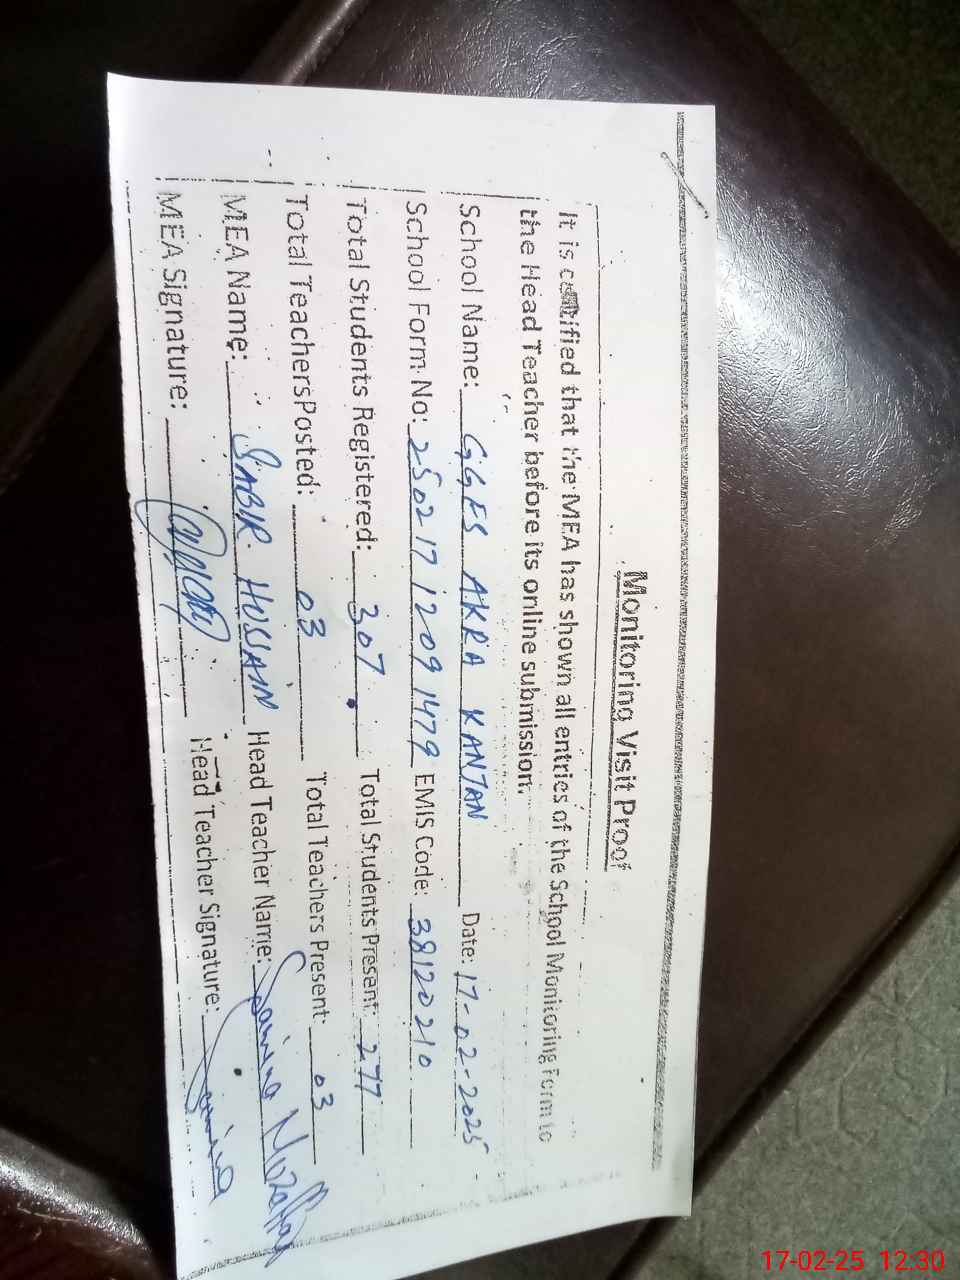 Monitoring Visit Proof
It is certified that the MEA has shown all entries of the School Monitoring Form to
the Head Teacher before its online submission.
School Name: GGES AKRA KANJAN Date: 17-02-2025
School Form No: 2502 17 1209 1479 EMIS Code: 38120210
Total Students Registered: 307 Total Students Present: 277
Total TeachersPosted: 03 Total Teachers Present: 03
MEA Name: SABIR HUSSAIN Head Teacher Name: Samina Mozaffar
MEA Signature: Head Teacher Signature: Samina
17-02-25 12:30